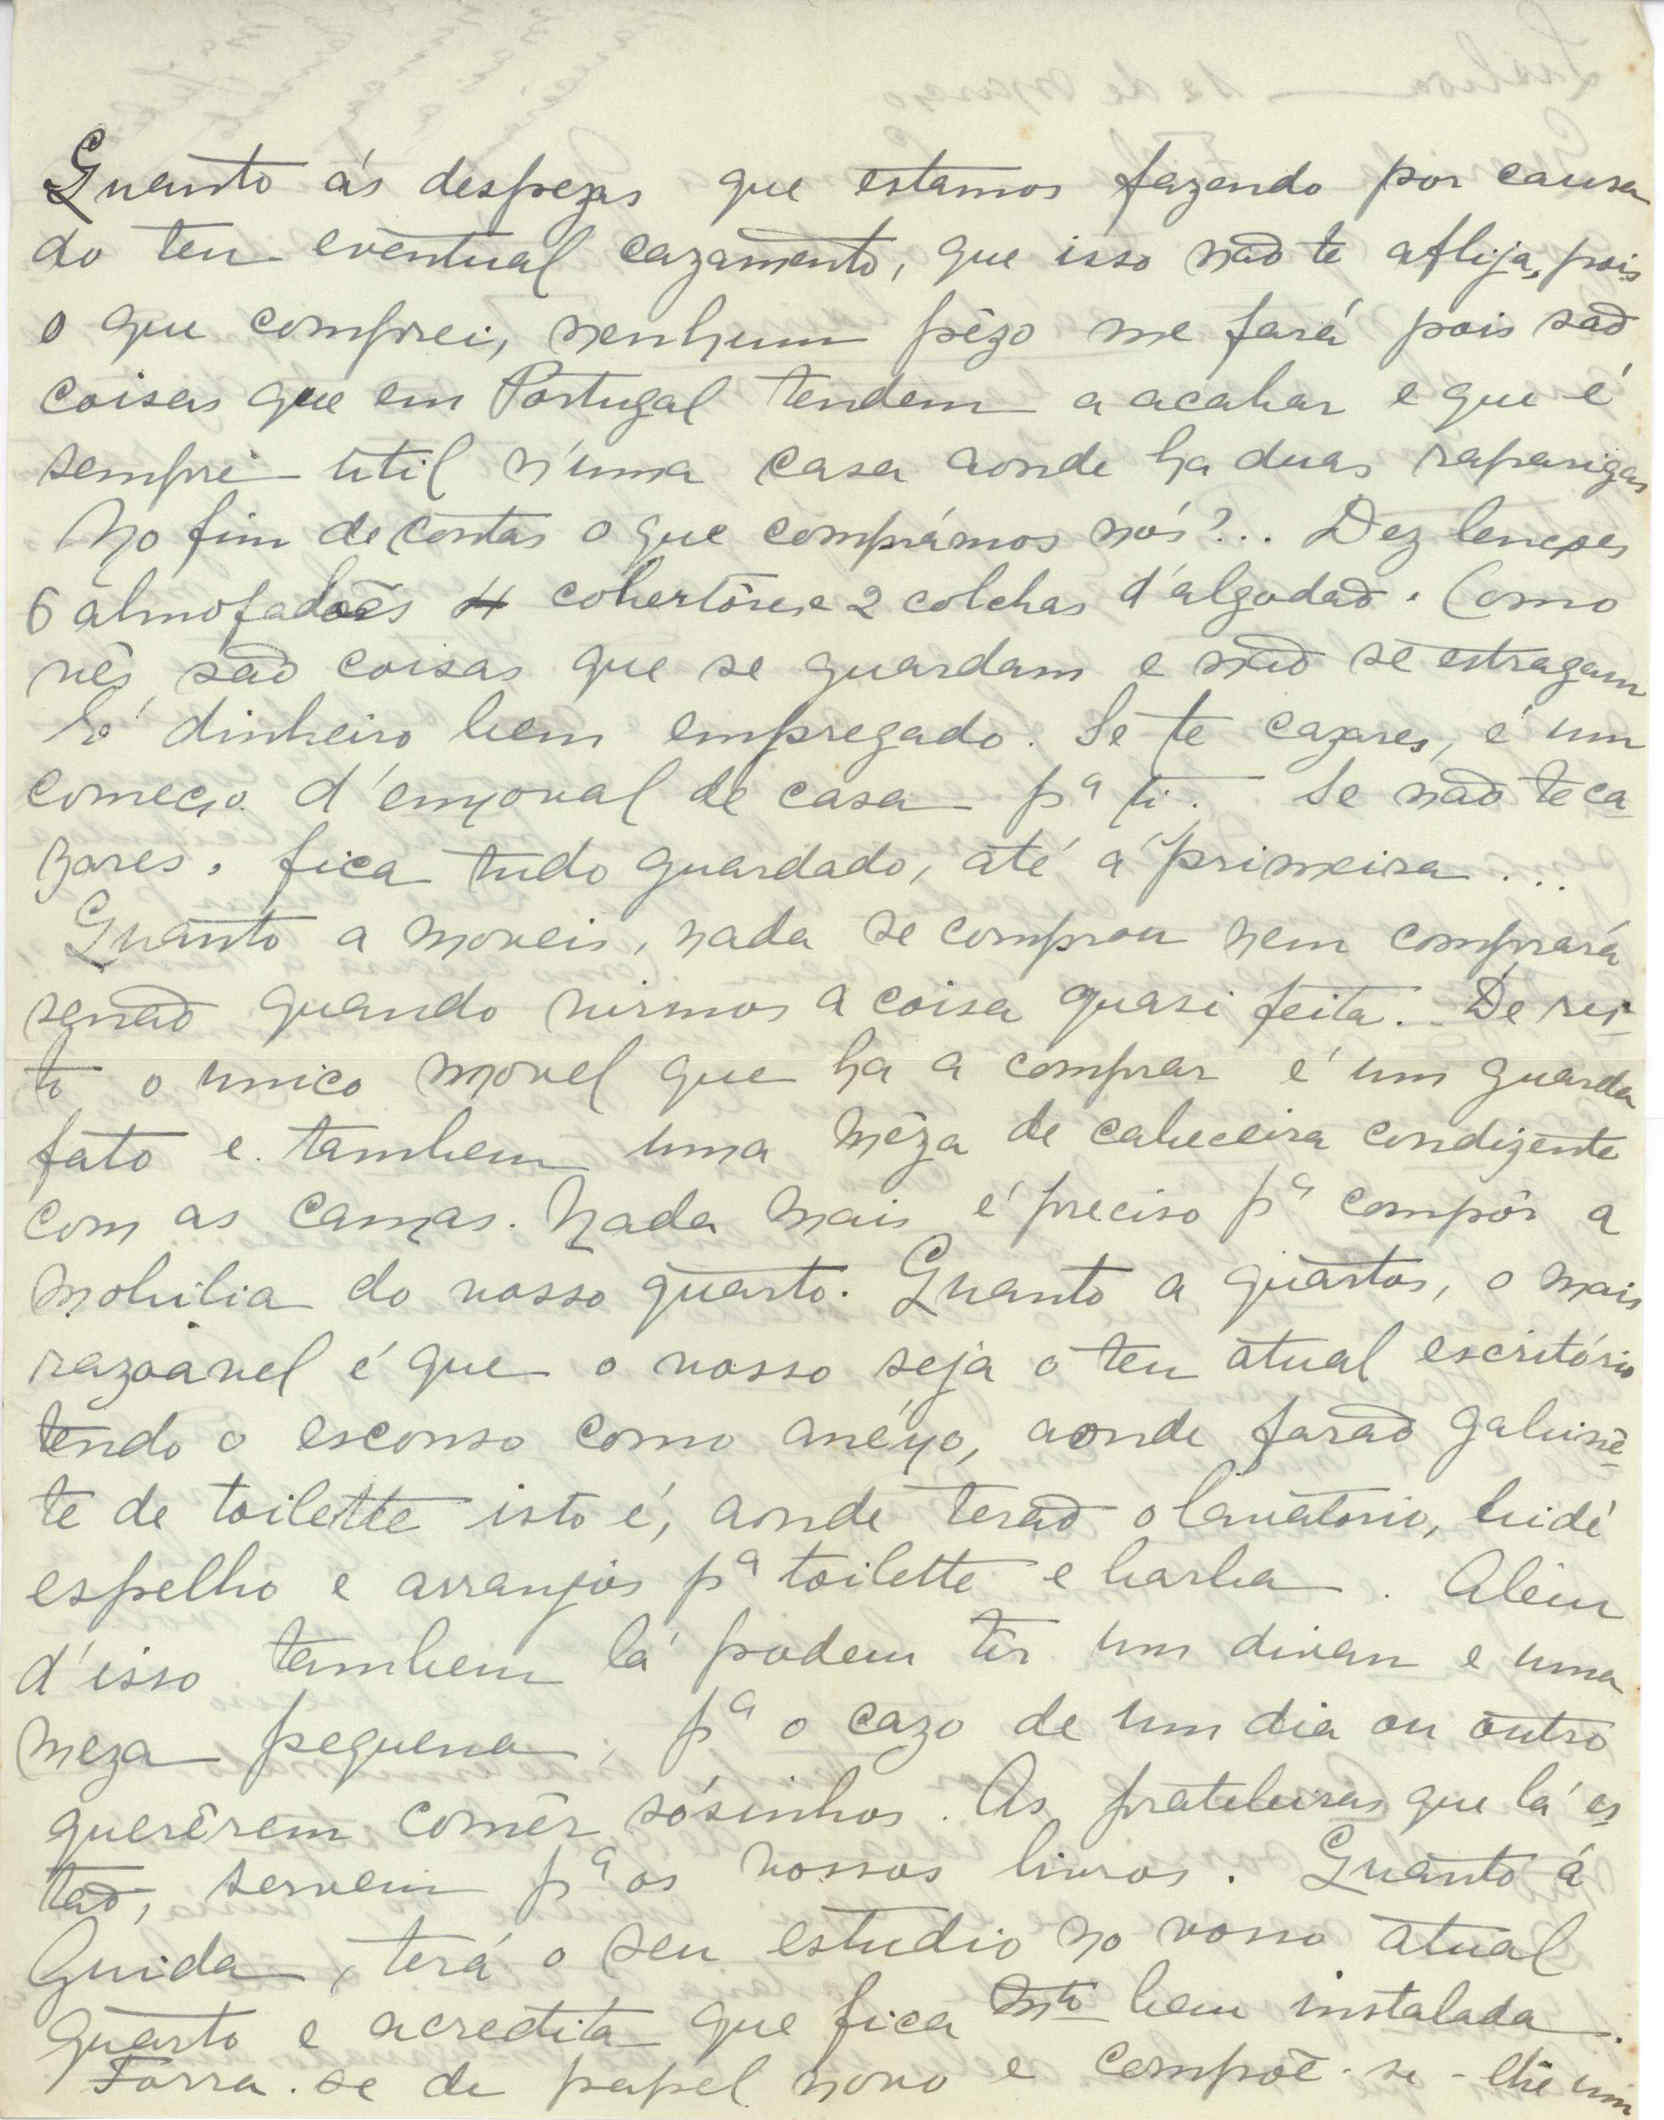 Quanto ás despezas que estamos fazendo por causa
do teu eventual cazamento, que isso não te aflija, pois
o que comprei, nenhum pêzo me fará pois são
coisas que em Portugal tendem a acabar e que é
sempre util n'uma casa aonde ha duas raparigas
No fim de contas o que comprámos nós?... Dez lençoes
6 almofadões 4 cobertôres e 2 colchas d'algodão. Como
vês, são coisas que se guardam e não se estragam
É dinheiro bem empregado. Se te cazares, é um
começo d'enxoval de casa pª ti. Se não te ca-
zares, fica tudo guardado, até á primeira...
Quanto a moveis, nada se comprou nem comprará
senão quando virmos a coisa quasi feita. De res-
to o unico movel que ha a comprar é um guarda
fato e tambem uma mêza de cabeceira condizente
com as camas. Nada mais é preciso pª compôr a
mobilia do vosso quarto. Quanto a quartos, o mais
razoavel é que o vosso seja o teu atual escritório
tendo o esconso como anéxo, aonde farão gabinê-
te de toilette isto é, aonde terão o lavatorio, bidé
espelho e arranjos pª toilette e barba. Alem
d'isso tambem lá podem têr um divan e uma
meza pequena, pª o cazo de um dia ou outro
querêrem comêr sósinhos. As prateleiras que lá es-
tão, servem pª os vossos livros. Quanto á
Guida, terá o seu estudio no vosso atual
quarto e acredita que fica mto bem instalada.
Forra-se de papel novo e compõe-se-lhe um